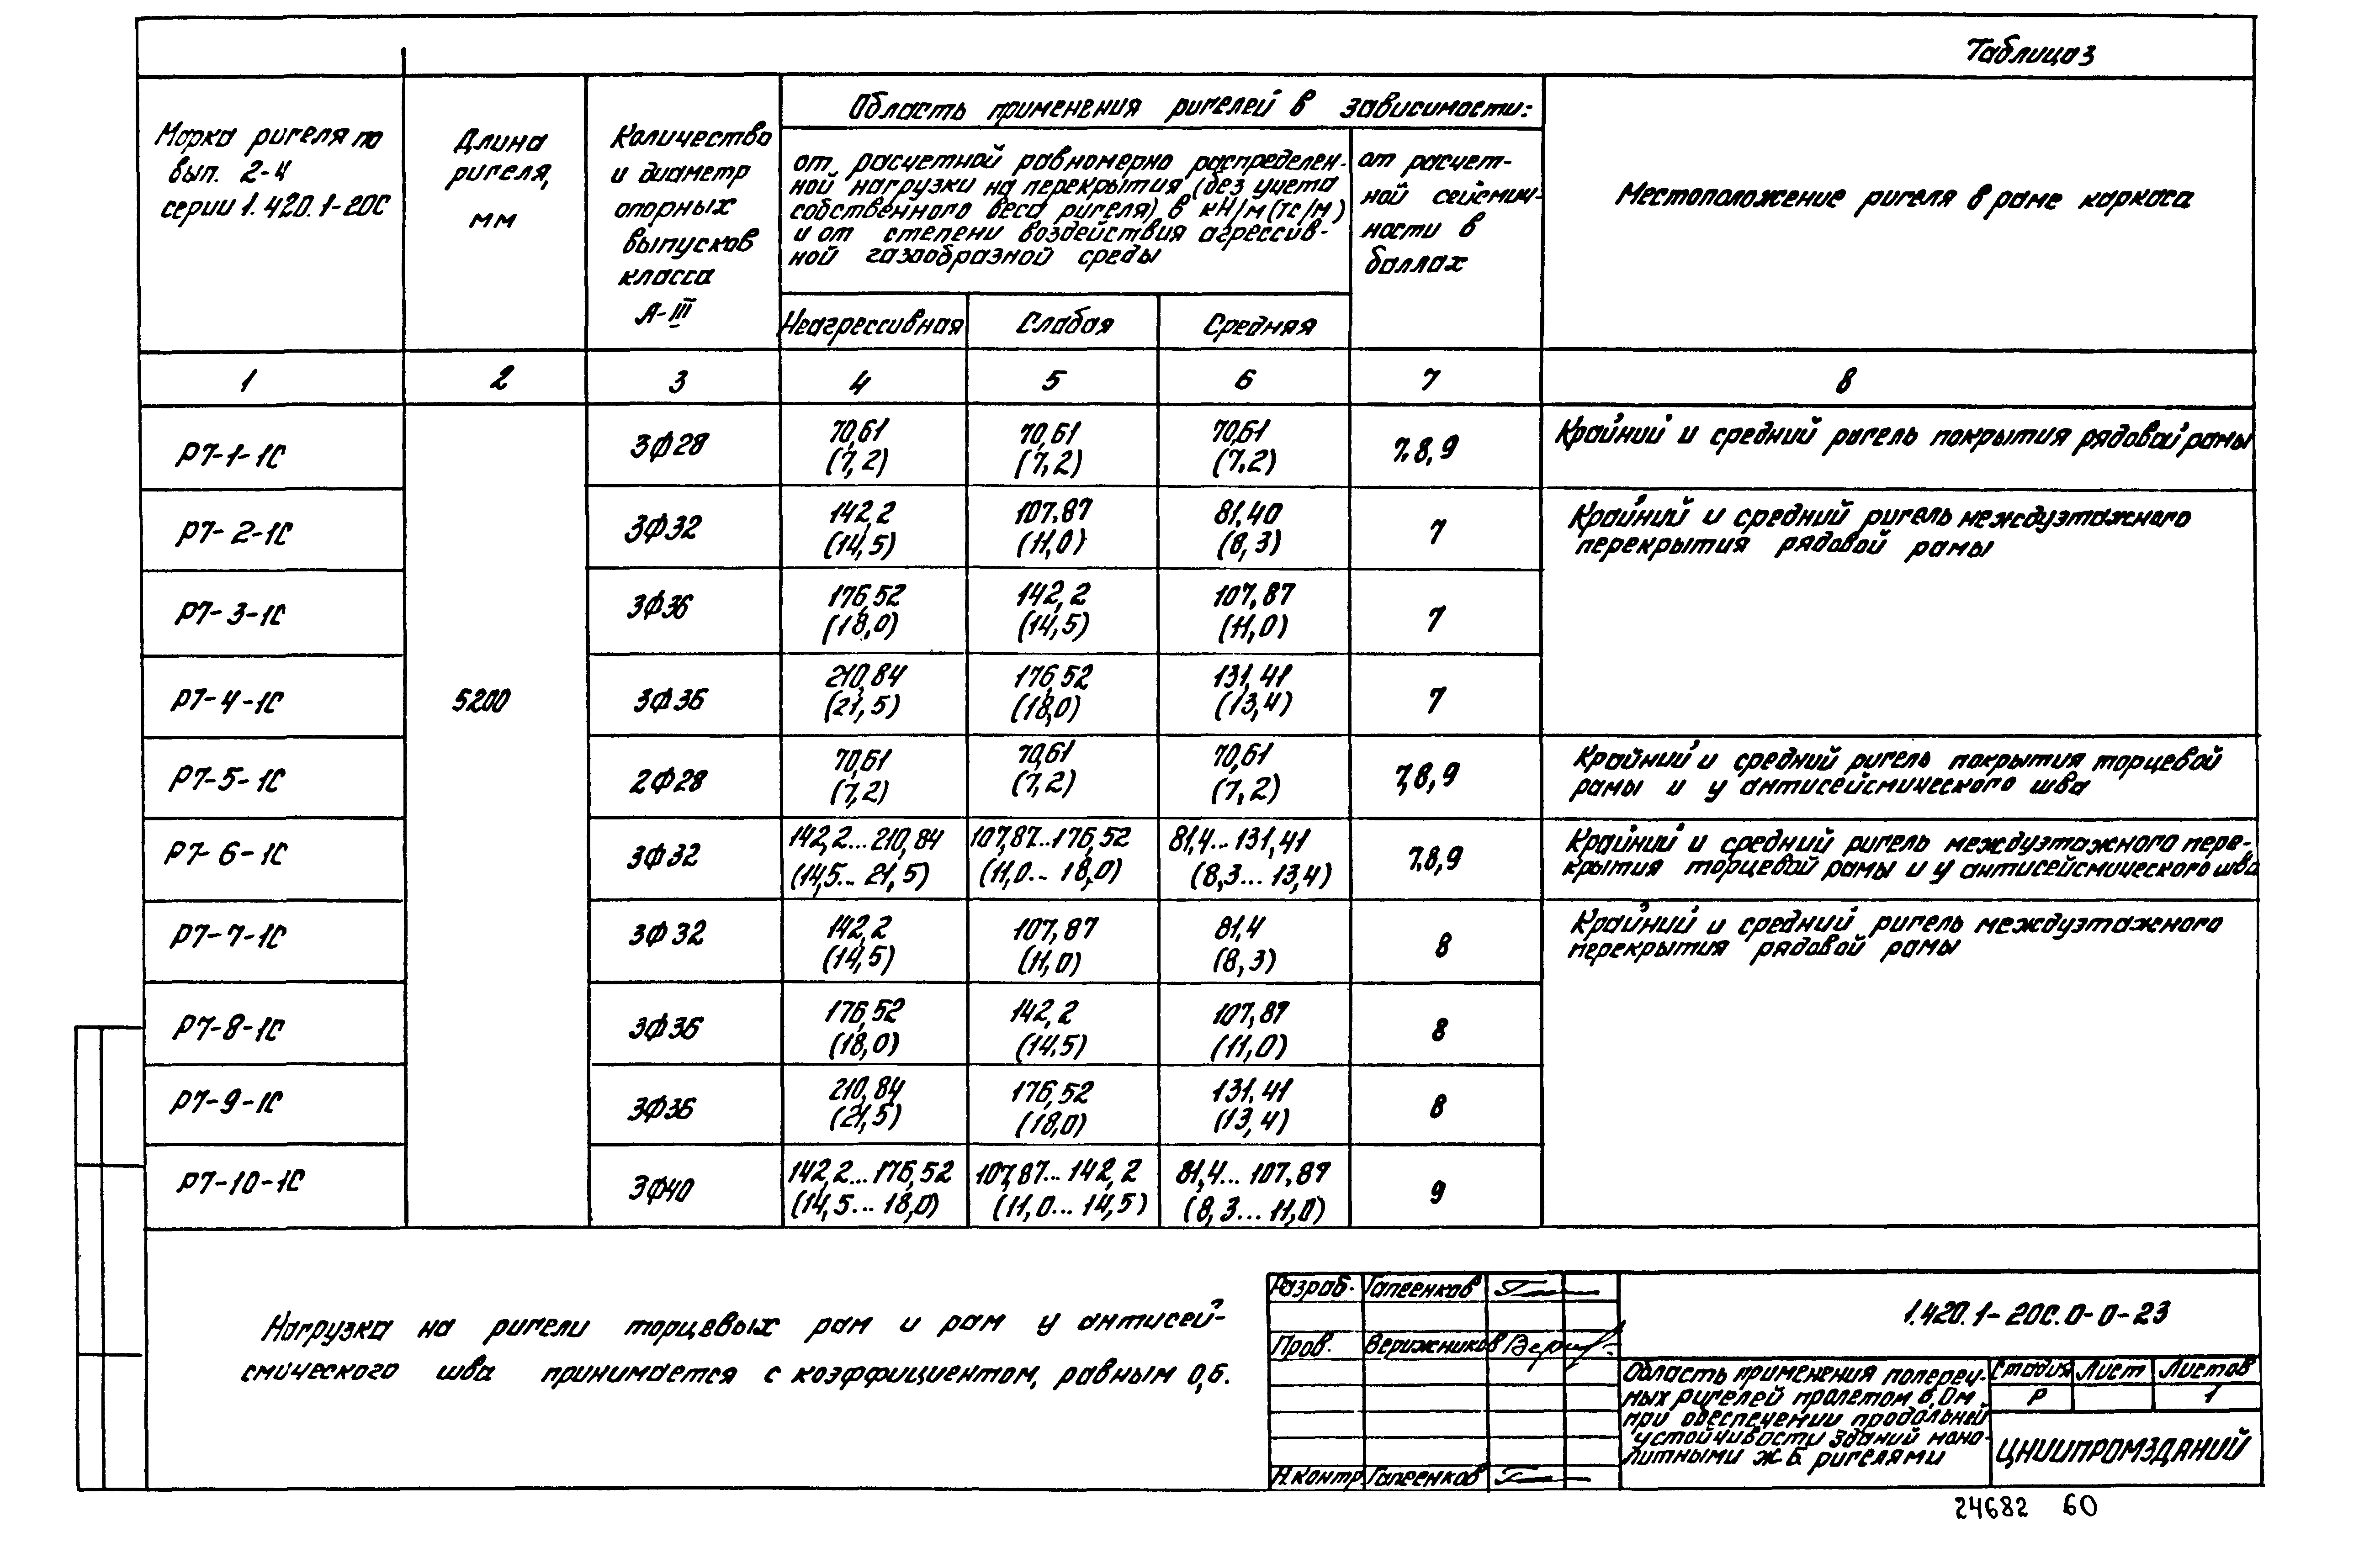 Таблица 3
Марка ригеля по
вып. 2-4
серии 1.420.1-20С
Длина
ригеля,
мм
Количество
и диаметр
опорных
выпусков
класса
А-III
Область применения ригелей в зависимости:
от расчетной равномерно распределен-
ной нагрузки на перекрытия (без учета
собственного веса ригеля) в кН/м (тс/м)
и от степени воздействия агрессив-
ной газообразной среды
от расчет-
ной сейсмич-
ности в
баллах
Местоположение ригеля в раме каркаса
Неагрессивная Слабая Средняя
1 2 3 4 5 6 7 8
Р7-1-1С 3Ф28 70,61 (7,2) 70,61 (7,2) 70,61 (7,2) 7,8,9 Крайний и средний ригель покрытия рядовой рамы
Р7-2-1С 3Ф32 142,2 (14,5) 107,87 (11,0) 81,40 (8,3) 7
Крайний и средний ригель междуэтажного
перекрытия рядовой рамы
Р7-3-1С 3Ф36 176,52 (18,0) 142,2 (14,5) 107,87 (11,0) 7
Р7-4-1С 5200 3Ф36 210,84 (21,5) 176,52 (18,0) 131,41 (13,4) 7
Р7-5-1С 2Ф28 70,61 (7,2) 70,61 (7,2) 70,61 (7,2) 7,8,9
Крайний и средний ригель покрытия торцевой
рамы и у антисейсмического шва
Р7-6-1С 3Ф32 142,2...210,84 (14,5...21,5) 107,87...176,52 (11,0...18,0) 81,4...131,41 (8,3...13,4) 7,8,9
Крайний и средний ригель междуэтажного пере-
крытия торцевой рамы и у антисейсмического шва
Р7-7-1С 3Ф32 142,2 (14,5) 107,87 (11,0) 81,4 (8,3) 8
Крайний и средний ригель междуэтажного
перекрытия рядовой рамы
Р7-8-1С 3Ф36 176,52 (18,0) 142,2 (14,5) 107,87 (11,0) 8
Р7-9-1С 3Ф36 210,84 (21,5) 176,52 (18,0) 131,41 (13,4) 8
Р7-10-1С 3Ф40 142,2...176,52 (14,5...18,0) 107,87...142,2 (11,0...14,5) 81,4...107,87 (8,3...11,0) 9
Нагрузка на ригели торцевых рам и рам у антисей-
смического шва принимается с коэффициентом, равным 0,6.
Разраб. Гапеенков
Пров. Верижников
Н.контр Гапеенков
1.420.1-20С.0-0-23
Область применения попереч-
ных ригелей пролетом 6,0м
при обеспечении продольной
устойчивости зданий моно-
литными ж.б. ригелями
Стадия Лист Листов
Р 1
ЦНИИПРОМЗДАНИЙ
24682 60